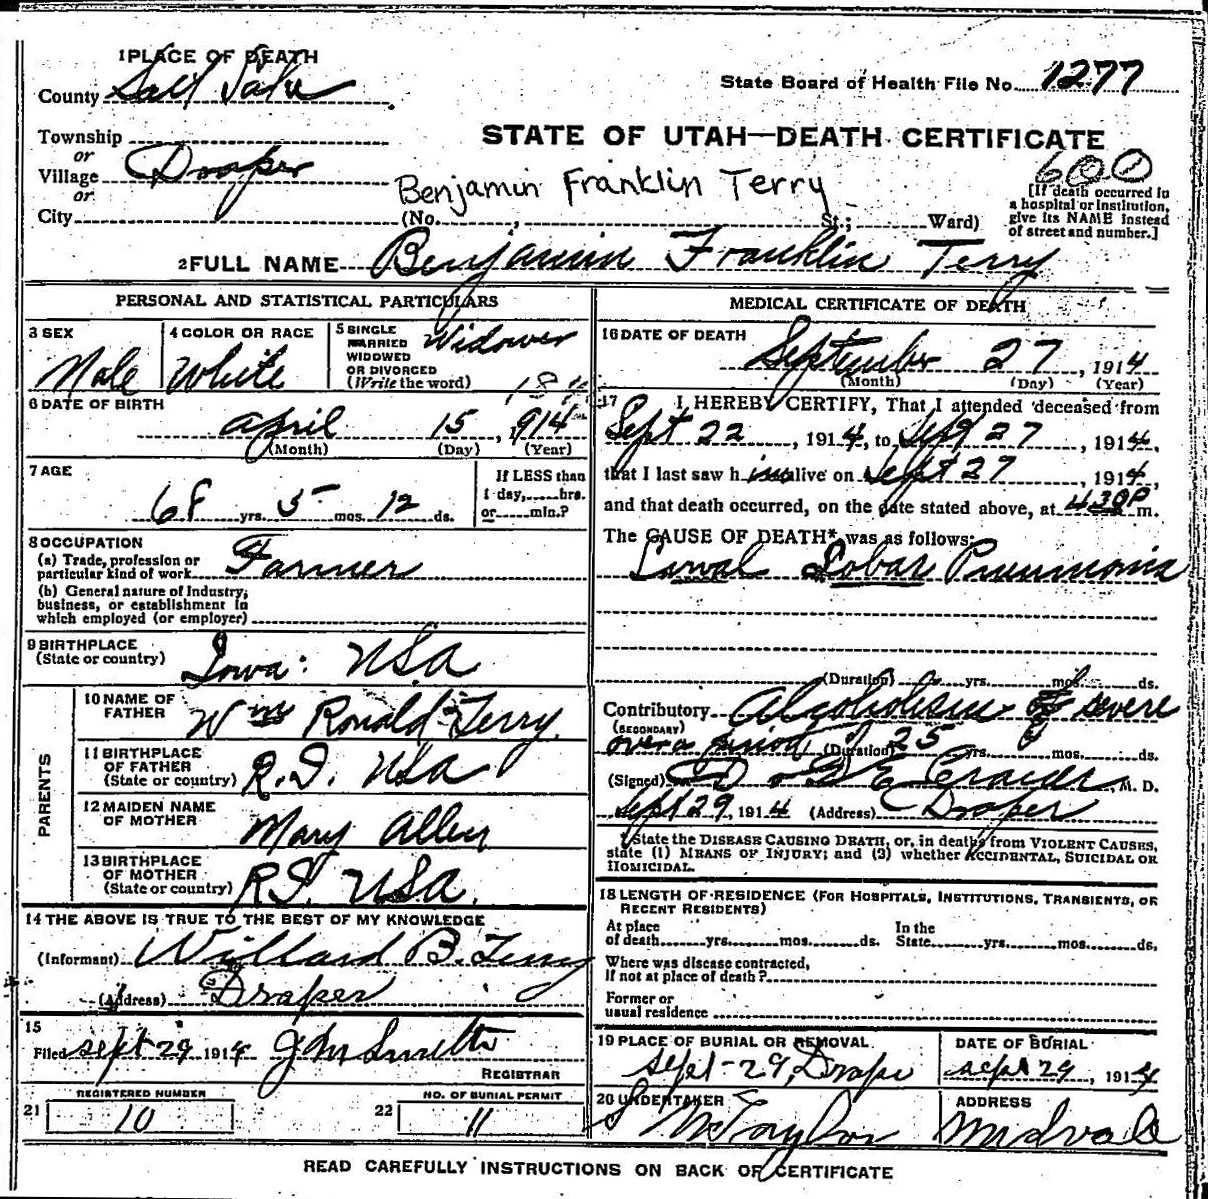 1 PLACE OF DEATH
County Salt Lake
State Board of Health File No. 1277
Township
or
Village Draper
or
City
STATE OF UTAH—DEATH CERTIFICATE
600
Benjamin Franklin Terry
(No. , St.; Ward)
[If death occurred in a hospital or institution, give its NAME instead of street and number.]
2 FULL NAME Benjamin Franklin Terry
PERSONAL AND STATISTICAL PARTICULARS
3 SEX
Male
4 COLOR OR RACE
White
5 SINGLE MARRIED WIDOWED OR DIVORCED (Write the word)
Widower
6 DATE OF BIRTH
April 15, 914
(Month) (Day) (Year)
7 AGE
68 yrs. 5 mos. 12 ds.
If LESS than 1 day, hrs. or min.?
8 OCCUPATION
(a) Trade, profession or particular kind of work Farmer
(b) General nature of Industry, business, or establishment in which employed (or employer)
9 BIRTHPLACE
(State or country) Iowa: USA
PARENTS
10 NAME OF FATHER Wm Ronald Terry.
11 BIRTHPLACE OF FATHER (State or country) R.I. USA
12 MAIDEN NAME OF MOTHER Mary Allen
13 BIRTHPLACE OF MOTHER (State or country) R.I. USA.
14 THE ABOVE IS TRUE TO THE BEST OF MY KNOWLEDGE
(Informant) Willard B. Terry
(Address) Draper
15
Filed sept 29 1914 John Smith
REGISTRAR
21 REGISTERED NUMBER 10
22 NO. OF BURIAL PERMIT 11
MEDICAL CERTIFICATE OF DEATH
16 DATE OF DEATH
September 27, 1914
(Month) (Day) (Year)
17 I HEREBY CERTIFY, That I attended deceased from
Sept 22, 1914, to Sept 27, 1914,
that I last saw him alive on Sept 27, 1914,
and that death occurred, on the date stated above, at 430P m.
The CAUSE OF DEATH* was as follows:
Lobar Pneumonia
(Duration) yrs. mos. ds.
Contributory Alcoholism severe
(SECONDARY)
over a period of (Duration) 25 yrs. mos. ds.
(Signed) M. D.
Sept 29, 1914 (Address) Draper
* State the DISEASE CAUSING DEATH, or, in deaths from VIOLENT CAUSES, state (1) MEANS OF INJURY; and (2) whether ACCIDENTAL, SUICIDAL OR HOMICIDAL.
18 LENGTH OF RESIDENCE (FOR HOSPITALS, INSTITUTIONS, TRANSIENTS, OR RECENT RESIDENTS)
At place of death yrs. mos. ds. In the State yrs. mos. ds.
Where was disease contracted, if not at place of death?
Former or usual residence
19 PLACE OF BURIAL OR REMOVAL
sept-29, Draper
DATE OF BURIAL
sept 29, 1914
20 UNDERTAKER
S McTaylor
ADDRESS
Midvale
READ CAREFULLY INSTRUCTIONS ON BACK OF CERTIFICATE